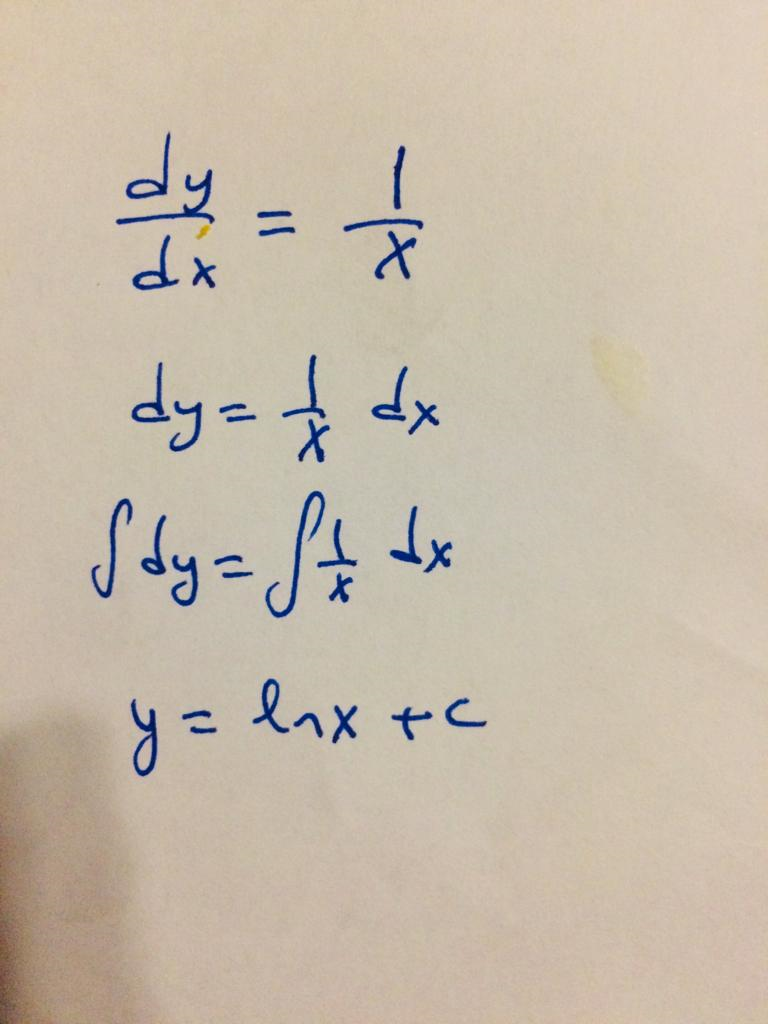 dy/dx = 1/x
dy = 1/x dx
∫dy = ∫1/x dx
y = lnx + c